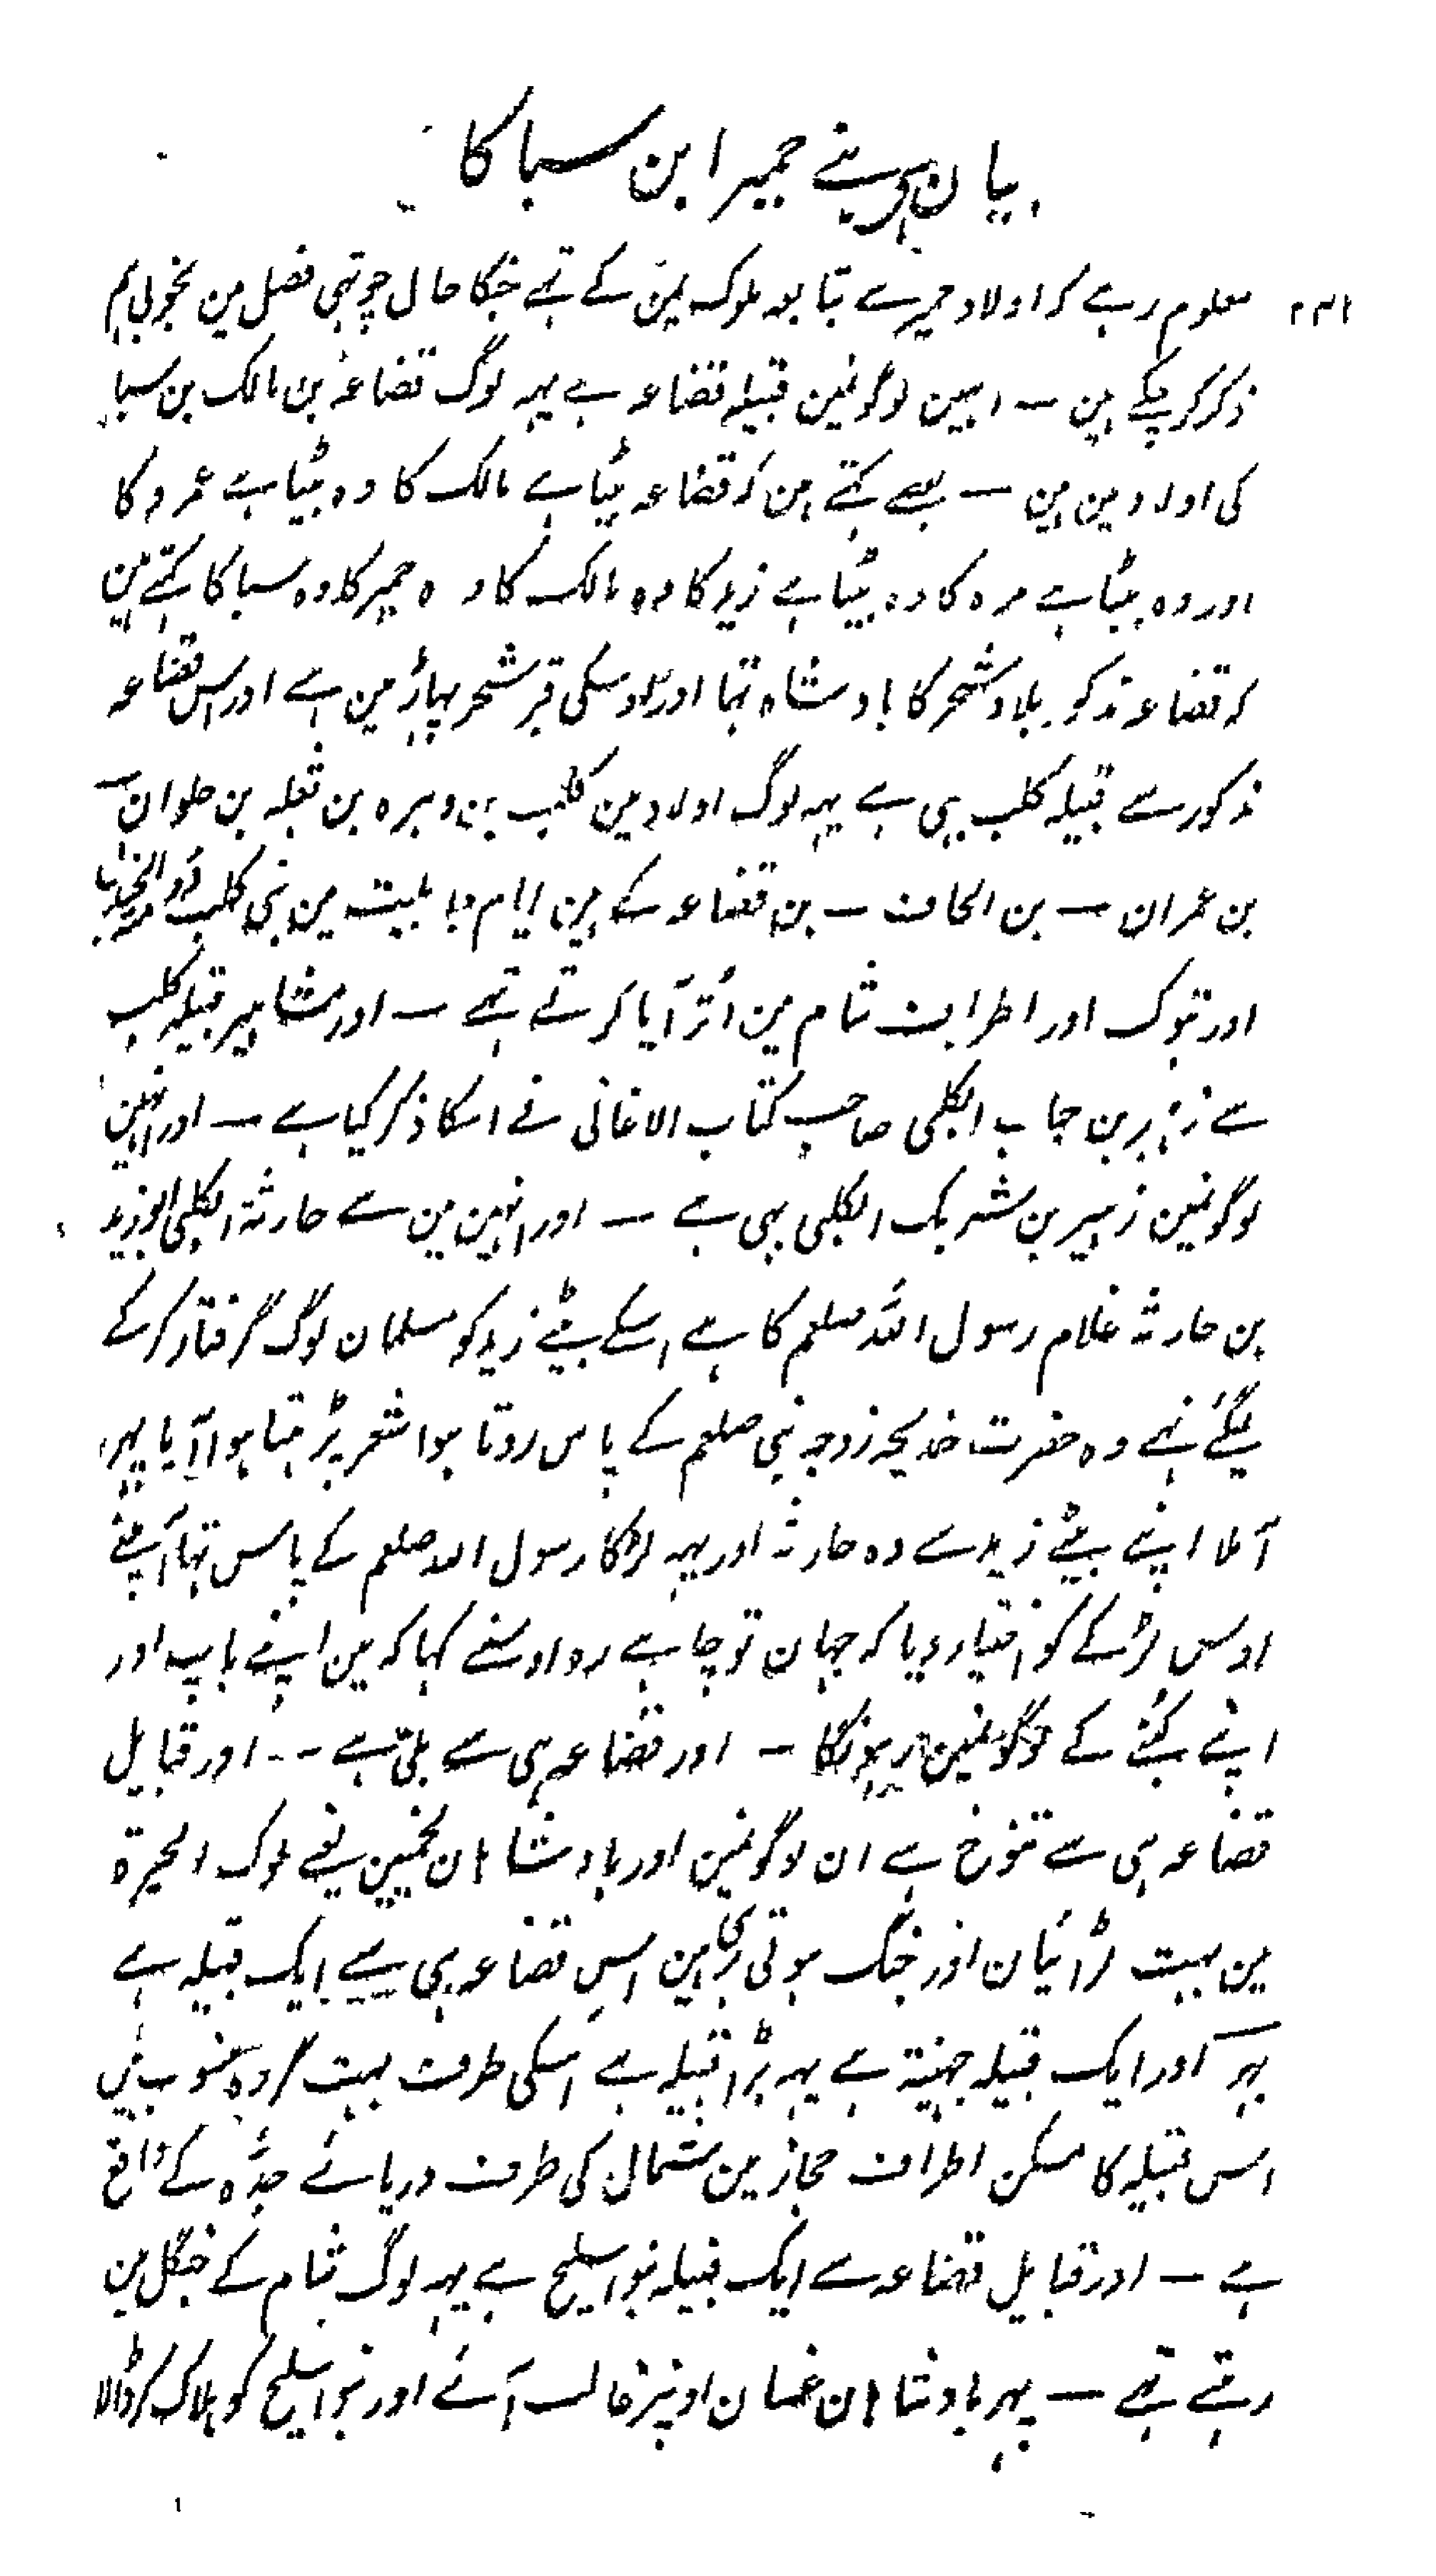 بیان بنے حمیر ابن سبا کا
۲۳۱ معلوم رہے کہ اولاد حمیر سے تبابعہ ملوک یمن کے تہے جنکا حال چوتہی فصل مین بخوبی ہم
ذکر کر چکے ہین — انہین لوگونمین قبیلہ قضاعہ ہے یہہ لوگ قضاعہ بن مالک بن سبا
کی اولاد مین ہین — بعضے کہتے ہین کہ قضاعہ بیٹا ہے مالک کا وہ بیٹا ہے عمرو کا
اور وہ بیٹا ہے مرہ کا وہ بیٹا ہے زید کا وہ مالک کا وہ حمیر کا وہ سبا کا کہتے ہین
کہ قضاعہ مذکور بلاد شحر کا بادشاہ تہا اور اوسکی قبر شحر پہاڑ مین ہے اور اس قضاعہ
مذکور سے قبیلہ کلب بہی ہے یہہ لوگ اولاد مین کلب بن وبرہ بن ثعلبہ بن حلوان —
بن عمران — بن الحاف — بن قضاعہ کے ہین ایام جاہلیت مین بنی کلب دومۃ الجندل
اور تبوک اور اطراف شام مین اُتر آیا کرتے تہے — اور مشاہیر قبیلہ کلب
سے زہیر بن جناب الکلبی صاحب کتاب الاغانی نے اسکا ذکر کیا ہے — اور انہین
لوگونمین زہیر بن شریک الکلبی بہی ہے — اور انہین مین سے حارثۃ الکلبی ابو زید
بن حارثہ غلام رسول اللہ صلعم کا ہے اسکے بیٹے زید کو مسلمان لوگ گرفتار کر کے
لیگئے تہے وہ حضرت خدیجہ زوجہ نبی صلعم کے پاس روتا ہوا شعر پڑہتا ہوا آیا پہر
آملا اپنے بیٹے زید سے وہ حارثہ اور یہہ لڑکا رسول اللہ صلعم کے پاس تہا آپنے
اوس لڑکے کو اختیار دیا کہ جہان تو چاہے رہ اوسنے کہا کہ مین اپنے باپ اور
اپنے کنبے کے لوگونمین رہونگا — اور قضاعہ ہی سے بلی ہے — اور قبایل
قضاعہ ہی سے تنوخ ہے ان لوگونمین اور بادشاہان لخمیین یعنے ملوک الحیرۃ
مین بہت لڑائیان اور جنگ ہوتی رہی ہین اس قضاعہ ہی سے ایک قبیلہ ہے
بہر اور ایک قبیلہ جہینۃ ہے یہہ بڑا قبیلہ ہے اسکی طرف بہت گروہ منسوب ہین
اس قبیلہ کا مسکن اطراف حجاز مین شمال کی طرف دریائے جدّہ کے واقع
ہے — اور قبایل قضاعہ سے ایک قبیلہ بنو اسلیح ہے یہہ لوگ شام کے جنگل مین
رہتے تہے — پہر بادشاہان غسان اونپر غالب آئے اور بنو اسلیح کو ہلاک کر ڈالا